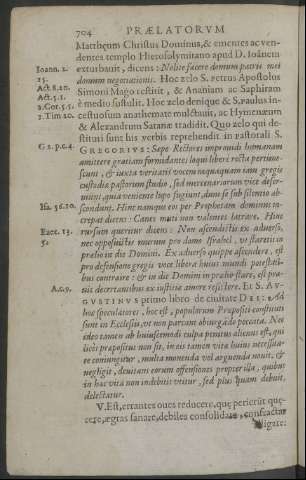 704 PRÆLATORVM
Mattheum Christus Dominus, & ementes ac ven-
dentes templo Hierosolymitano apud D. Ioānem
Ioann. 2. exturbauit, dicens: Nolite facere domum patris mei
15. domum negotiationis. Hoc zelo S. Petrus Apostolus
Act. 8.20. Simoni Mago restitit, & Ananiam ac Saphiram
Act. 5.1. è medio sustulit. Hoc zelo denique & S. Paulus in-
1. Cor. 5.5. cestuosum anathemate mulctauit, ac Hymenæum
1. Tim. 20. & Alexandrum Satanæ tradidit. Quo zelo qui de-
stituti sunt his verbis reprehendit in pastorali S.
G 2. p.c.4. GREGORIVS: Sæpe Rectores improuidi humanam
amittere gratiam formidantes; loqui libere recta pertime-
scunt, & iuxta veritatis vocem nequaquam iam gregis
custodiæ pastorum studio, sed mercenariorum vice deser-
uiunt; quia veniente lupo fugiunt, dum se sub silentio ab-
Isa. 56.10. scondunt. Hinc namque eos per Prophetam dominus in-
crepat dicens: Canes muti non valentes latrare. Hinc
Ezec. 13. rursum queritur dicens: Non ascendistis ex aduerso,
5. nec opposuistis murum pro domo Israhel, vt staretis in
prælio in die Domini. Ex aduerso quippe ascendere, est
pro defensione gregis voce libera huius mundi potestati-
bus contraire: & in die Domini in prælio stare, est pra-
A.c.9. uis decertantibus ex iustitiæ amore resistere. Et S. AV-
GVSTINVS primo libro de ciuitate DEI: Ad
hoc speculatores, hoc est, populorum Præpositi constituti
sunt in Ecclesiis, vt non parcant obiurgādo peccata. Nec
ideo tamen ab huiuscemodi culpa penitus alienus est, qui
licet præpositus non sit, in eis tamen vita huius necessita-
te coniungitur, multa monenda vel arguenda nouit, &
negligit, deuitans eorum offensiones propter illa, quibus
in hac vita non indebitis vtitur, sed plus quam debuit,
delectatur.
V. Est, errantes oues reducere, quę perierūt quę-
rere, ægras sanare, debiles consolidare, confractas
alligare: